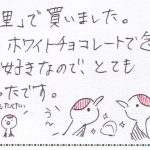 里」で買いました。
ホワイトチョコレートで包
好きなので、とても
ったです。
う〜ん